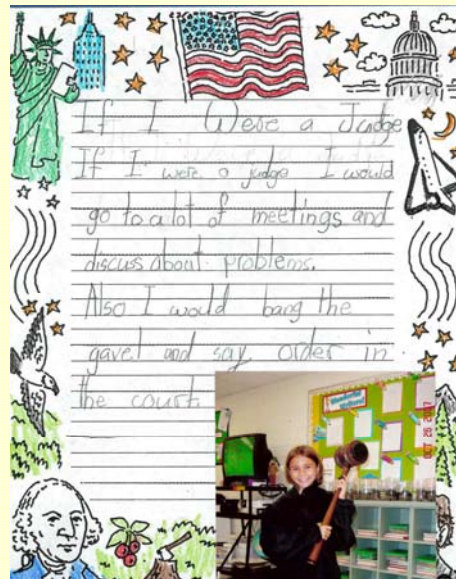 If I Were a Judge
If I were a judge I would
go to a lot of meetings and
discuss about problems.
Also I would bang the
gavel and say order in
the court
Wonderful
OCT 26 2017